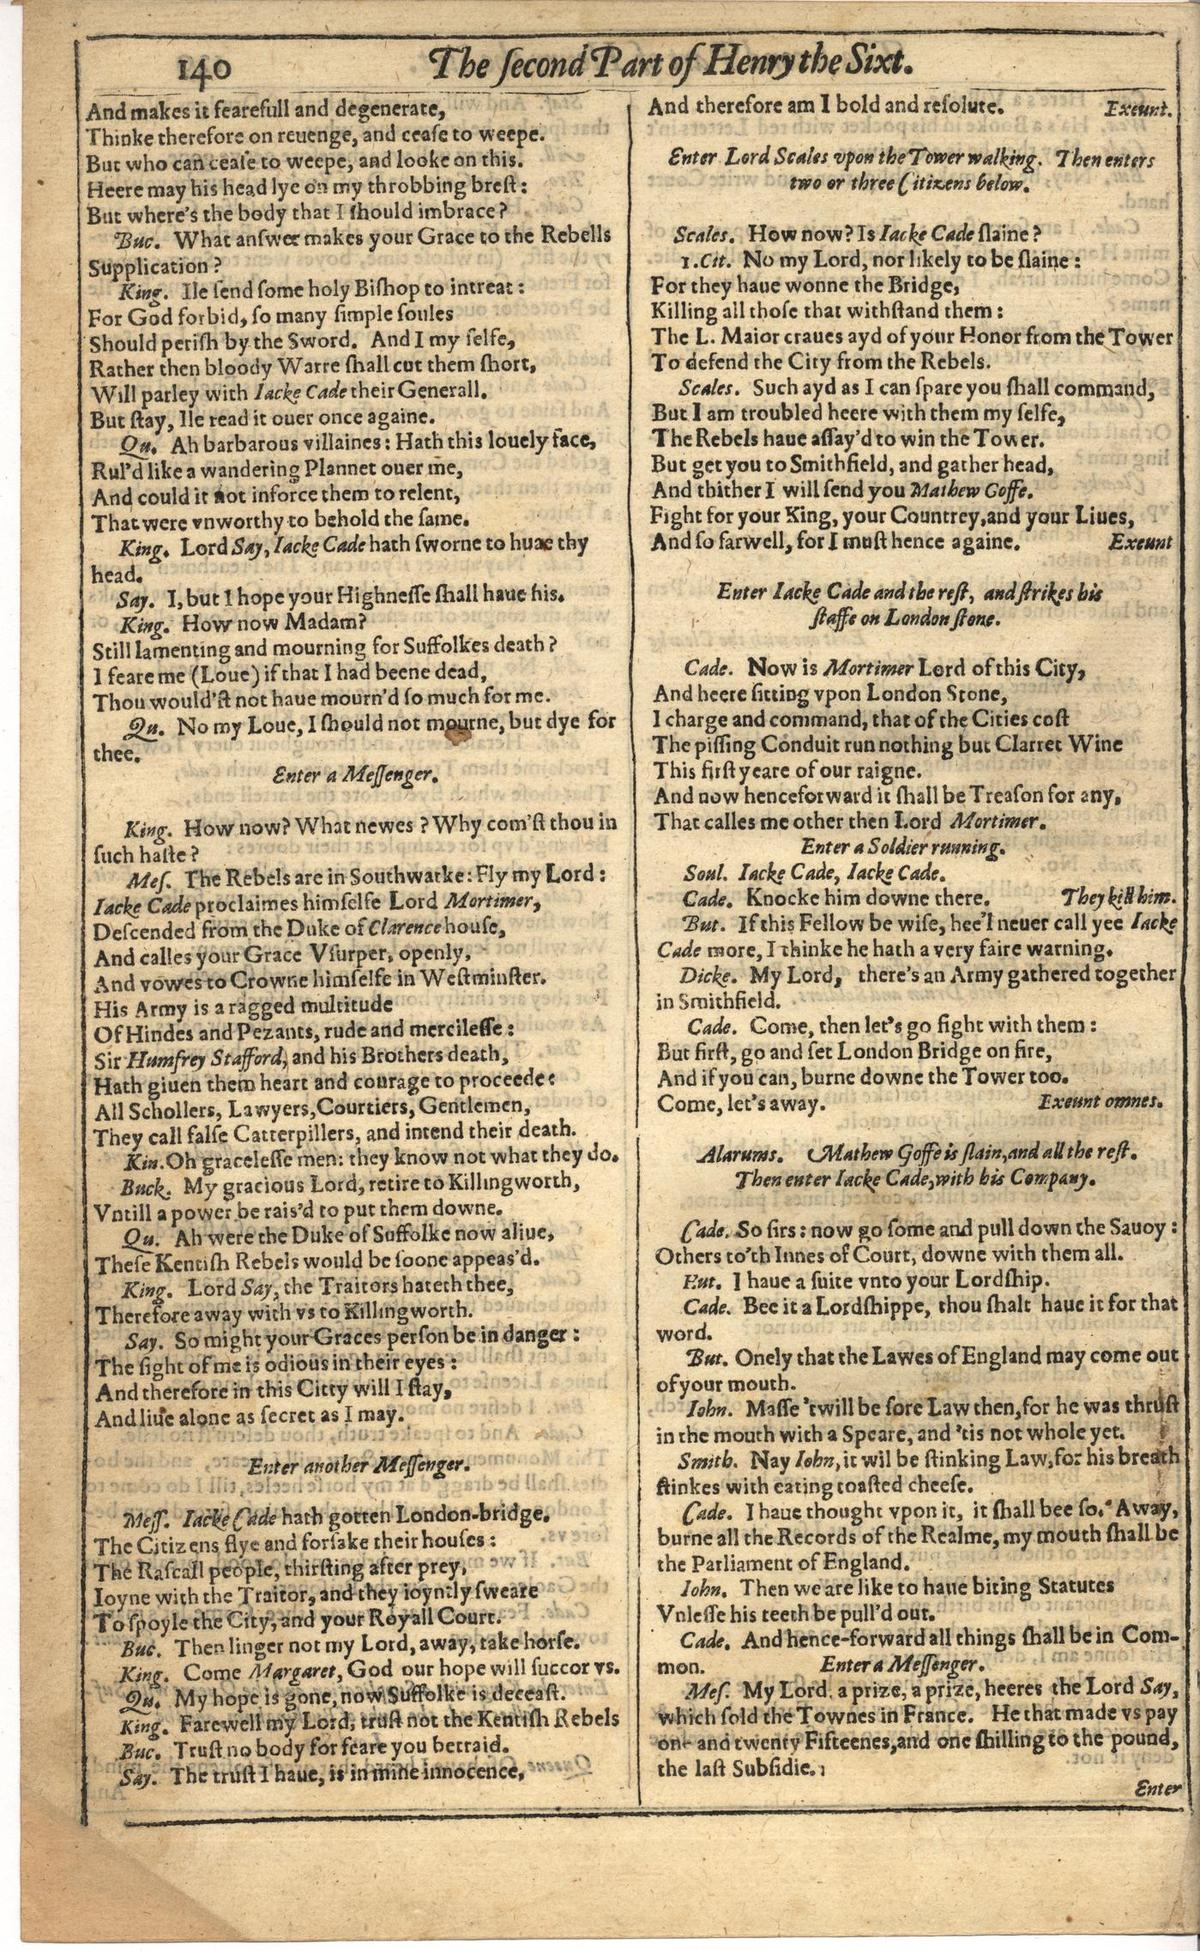 140
The ſecond Part of Henry the Sixt.
And makes it fearefull and degenerate,
Thinke therefore on reuenge, and ceaſe to weepe.
But who can ceaſe to weepe, and looke on this.
Heere may his head lye on my throbbing breſt:
But where's the body that I ſhould imbrace?
Buc. What anſwer makes your Grace to the Rebells
Supplication?
King. Ile ſend ſome holy Biſhop to intreat:
For God forbid, ſo many ſimple ſoules
Should periſh by the Sword. And I my ſelfe,
Rather then bloody Warre ſhall cut them ſhort,
Will parley with Iacke Cade their Generall.
But ſtay, Ile read it ouer once againe.
Qu. Ah barbarous villaines: Hath this louely face,
Rul'd like a wandering Plannet ouer me,
And could it not inforce them to relent,
That were vnworthy to behold the ſame.
King. Lord Say, Iacke Cade hath ſworne to huae thy
head.
Say. I, but I hope your Highneſſe ſhall haue his.
King. How now Madam?
Still lamenting and mourning for Suffolkes death?
I feare me (Loue) if that I had beene dead,
Thou would'ſt not haue mourn'd ſo much for me.
Qu. No my Loue, I ſhould not mourne, but dye for
thee.
Enter a Meſſenger.
King. How now? What newes? Why com'ſt thou in
ſuch haſte?
Meſ. The Rebels are in Southwarke: Fly my Lord:
Iacke Cade proclaimes himſelfe Lord Mortimer,
Deſcended from the Duke of Clarence houſe,
And calles your Grace Vſurper, openly,
And vowes to Crowne himſelfe in Weſtminſter.
His Army is a ragged multitude
Of Hindes and Pezants, rude and mercileſſe:
Sir Humfrey Stafford, and his Brothers death,
Hath giuen them heart and courage to proceede:
All Schollers, Lawyers, Courtiers, Gentlemen,
They call falſe Catterpillers, and intend their death.
Kin. Oh graceleſſe men: they know not what they do.
Buck. My gracious Lord, retire to Killingworth,
Vntill a power be rais'd to put them downe.
Qu. Ah were the Duke of Suffolke now aliue,
Theſe Kentiſh Rebels would be ſoone appeas'd.
King. Lord Say, the Traitors hateth thee,
Therefore away with vs to Killingworth.
Say. So might your Graces perſon be in danger:
The ſight of me is odious in their eyes:
And therefore in this Citty will I ſtay,
And liue alone as ſecret as I may.
Enter another Meſſenger.
Meſſ. Iacke Cade hath gotten London-bridge.
The Citizens flye and forſake their houſes:
The Raſcall people, thirſting after prey,
Ioyne with the Traitor, and they ioyntly ſweare
To ſpoyle the City, and your Royall Court.
Buc. Then linger not my Lord, away, take horſe.
King. Come Margaret, God our hope will ſuccor vs.
Qu. My hope is gone, now Suffolke is deceaſt.
King. Farewell my Lord, truſt not the Kentiſh Rebels
Buc. Truſt no body for feare you betraid.
Say. The truſt I haue, is in mine innocence,
And therefore am I bold and reſolute. Exeunt.
Enter Lord Scales vpon the Tower walking. Then enters
two or three Citizens below.
Scales. How now? Is Iacke Cade ſlaine?
1.Cit. No my Lord, nor likely to be ſlaine:
For they haue wonne the Bridge,
Killing all thoſe that withſtand them:
The L. Maior craues ayd of your Honor from the Tower
To defend the City from the Rebels.
Scales. Such ayd as I can ſpare you ſhall command,
But I am troubled heere with them my ſelfe,
The Rebels haue aſſay'd to win the Tower.
But get you to Smithfield, and gather head,
And thither I will ſend you Mathew Goffe.
Fight for your King, your Countrey, and your Liues,
And ſo farwell, for I muſt hence againe. Exeunt
Enter Iacke Cade and the reſt, and ſtrikes his
ſtaffe on London ſtone.
Cade. Now is Mortimer Lord of this City,
And heere ſitting vpon London Stone,
I charge and command, that of the Cities coſt
The piſſing Conduit run nothing but Clarret Wine
This firſt yeare of our raigne.
And now henceforward it ſhall be Treaſon for any,
That calles me other then Lord Mortimer.
Enter a Soldier running.
Soul. Iacke Cade, Iacke Cade.
Cade. Knocke him downe there. They kill him.
But. If this Fellow be wiſe, hee'l neuer call yee Iacke
Cade more, I thinke he hath a very faire warning.
Dicke. My Lord, there's an Army gathered together
in Smithfield.
Cade. Come, then let's go fight with them:
But firſt, go and ſet London Bridge on fire,
And if you can, burne downe the Tower too.
Come, let's away. Exeunt omnes.
Alarums. Mathew Goffe is ſlain, and all the reſt.
Then enter Iacke Cade, with his Company.
Cade. So ſirs: now go ſome and pull down the Sauoy:
Others to'th Innes of Court, downe with them all.
But. I haue a ſuite vnto your Lordſhip.
Cade. Bee it a Lordſhippe, thou ſhalt haue it for that
word.
But. Onely that the Lawes of England may come out
of your mouth.
Iohn. Maſſe 'twill be ſore Law then, for he was thruſt
in the mouth with a Speare, and 'tis not whole yet.
Smith. Nay Iohn, it wil be ſtinking Law, for his breath
ſtinkes with eating toaſted cheeſe.
Cade. I haue thought vpon it, it ſhall bee ſo. Away,
burne all the Records of the Realme, my mouth ſhall be
the Parliament of England.
Iohn. Then we are like to haue biting Statutes
Vnleſſe his teeth be pull'd out.
Cade. And hence-forward all things ſhall be in Com-
mon. Enter a Meſſenger.
Meſ. My Lord, a prize, a prize, heeres the Lord Say,
which ſold the Townes in France. He that made vs pay
one and twenty Fifteenes, and one ſhilling to the pound,
the laſt Subſidie.
Enter